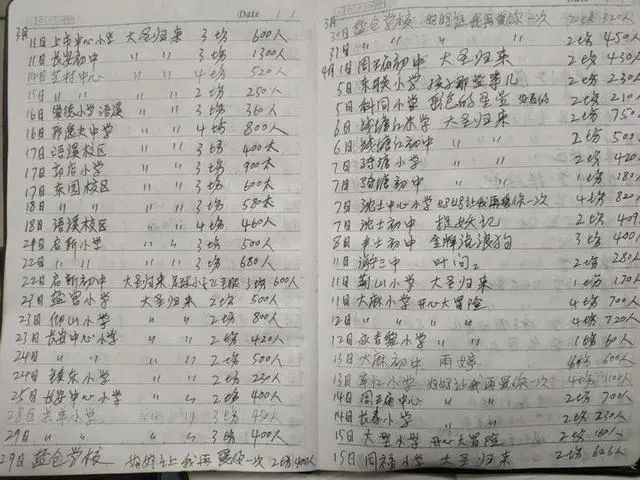 Date
3月
11日 上市中心小学 大圣归来 3场 600人
11日 长安初中 〃 〃 3场 1300人
14日 芝村中心 〃 〃 4场 520人
15日 〃 〃 〃 〃 2场 250人
16日 崇德小学语溪 〃 〃 3场 360人
16日 大中学 〃 〃 4场 800人
17日 语溪校区 〃 〃 3场 400本
17日 小学 〃 〃 3场 900本
17日 东园校区 〃 〃 3场 600本
18日 〃 〃 〃 3场 580本
18日 语溪校区 〃 〃 4场 460人
21日 启新小学 〃 〃 3场 500人
22日 〃 〃 〃 〃 3场 680人
22日 启新初中 大圣归来 足球小子 3场 600人
小学 大圣归来 2场 500人
23日 仰山小学 〃 〃 2场 800人
23日 长安中心小学 〃 〃 2场 420人
24日 〃 〃 〃 〃 2场 500人
24日 镇东小学 〃 〃 2场 230人
25日 长安中心小学 〃 〃 2场 400人
28日 小学 〃 〃 3场 450人
29日 〃 〃 〃 〃 3场 400人
29日 盐仓学校 妈妈让我再爱你一次 2场 400人
Date
3月
30日 盐仓学校 妈妈让我再爱你一次 2场 320人
31日 〃 〃 〃 〃 2场 450人
4月1日 周王庙初中 大圣归来 2场 430人
5日 东联小学 孩子那些事儿 2场 230人
5日 科同小学 彩色的星空 2场 210人
6日 钱塘江小学 大圣归来 2场 750人
6日 钱塘江初中 〃 〃 2场
7日 小学 〃 〃 2场 420
7日 初中 〃 〃 1场
7日 沈士中心小学 妈妈让我再爱你一次 4场
7日 沈士初中 捉妖记 2场
8日 丰士初中 金牌流浪狗 3场 400
11日 三中 叶问2 2场 280
11日 荆山小学 大圣归来 1场 170人
11日 大麻小学 开心大冒险 4场 700人
12日 〃 〃 〃 〃 4场 720人
12日 永秀 小学 〃 〃 1场 60人
13日 大麻初中 雨婷 600人
13日 小学 妈妈让我再爱你一次 4场 1100人
14日 周王庙中心 〃 〃 2场 700人
14日 长春小学 〃 〃 2场 230人
15日 大型小学 开心大冒险 2场 160人
15日 同福小学 大圣归来 2场 626人